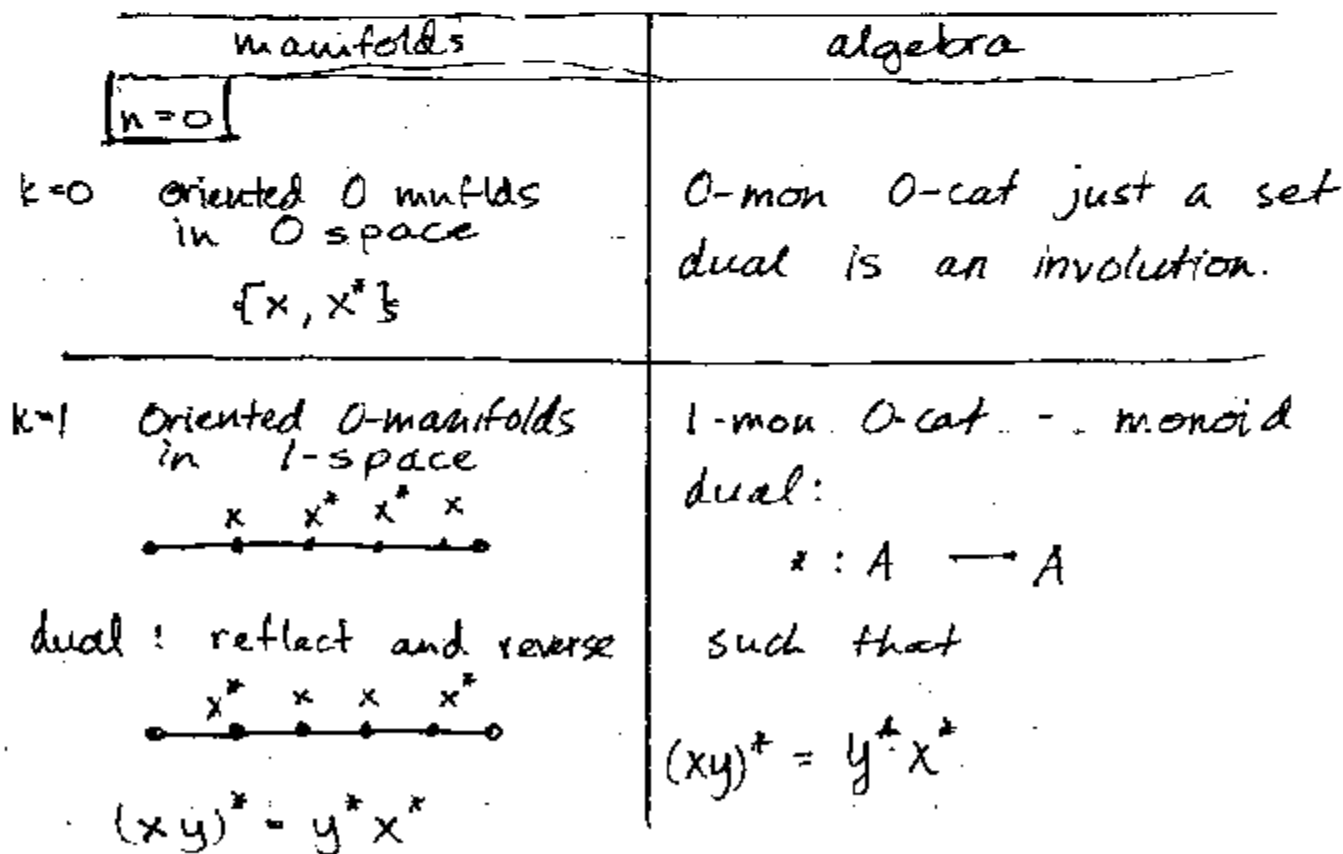 manifolds
algebra
n=0
k=0 oriented 0 mnflds
in 0 space
{x, x*}
0-mon 0-cat just a set
dual is an involution.
k=1 Oriented 0-manifolds
in 1-space
x x* x* x
dual: reflect and reverse
x* x x x*
(xy)* = y* x*
1-mon 0-cat - monoid
dual:
* : A → A
such that
(xy)* = y* x*